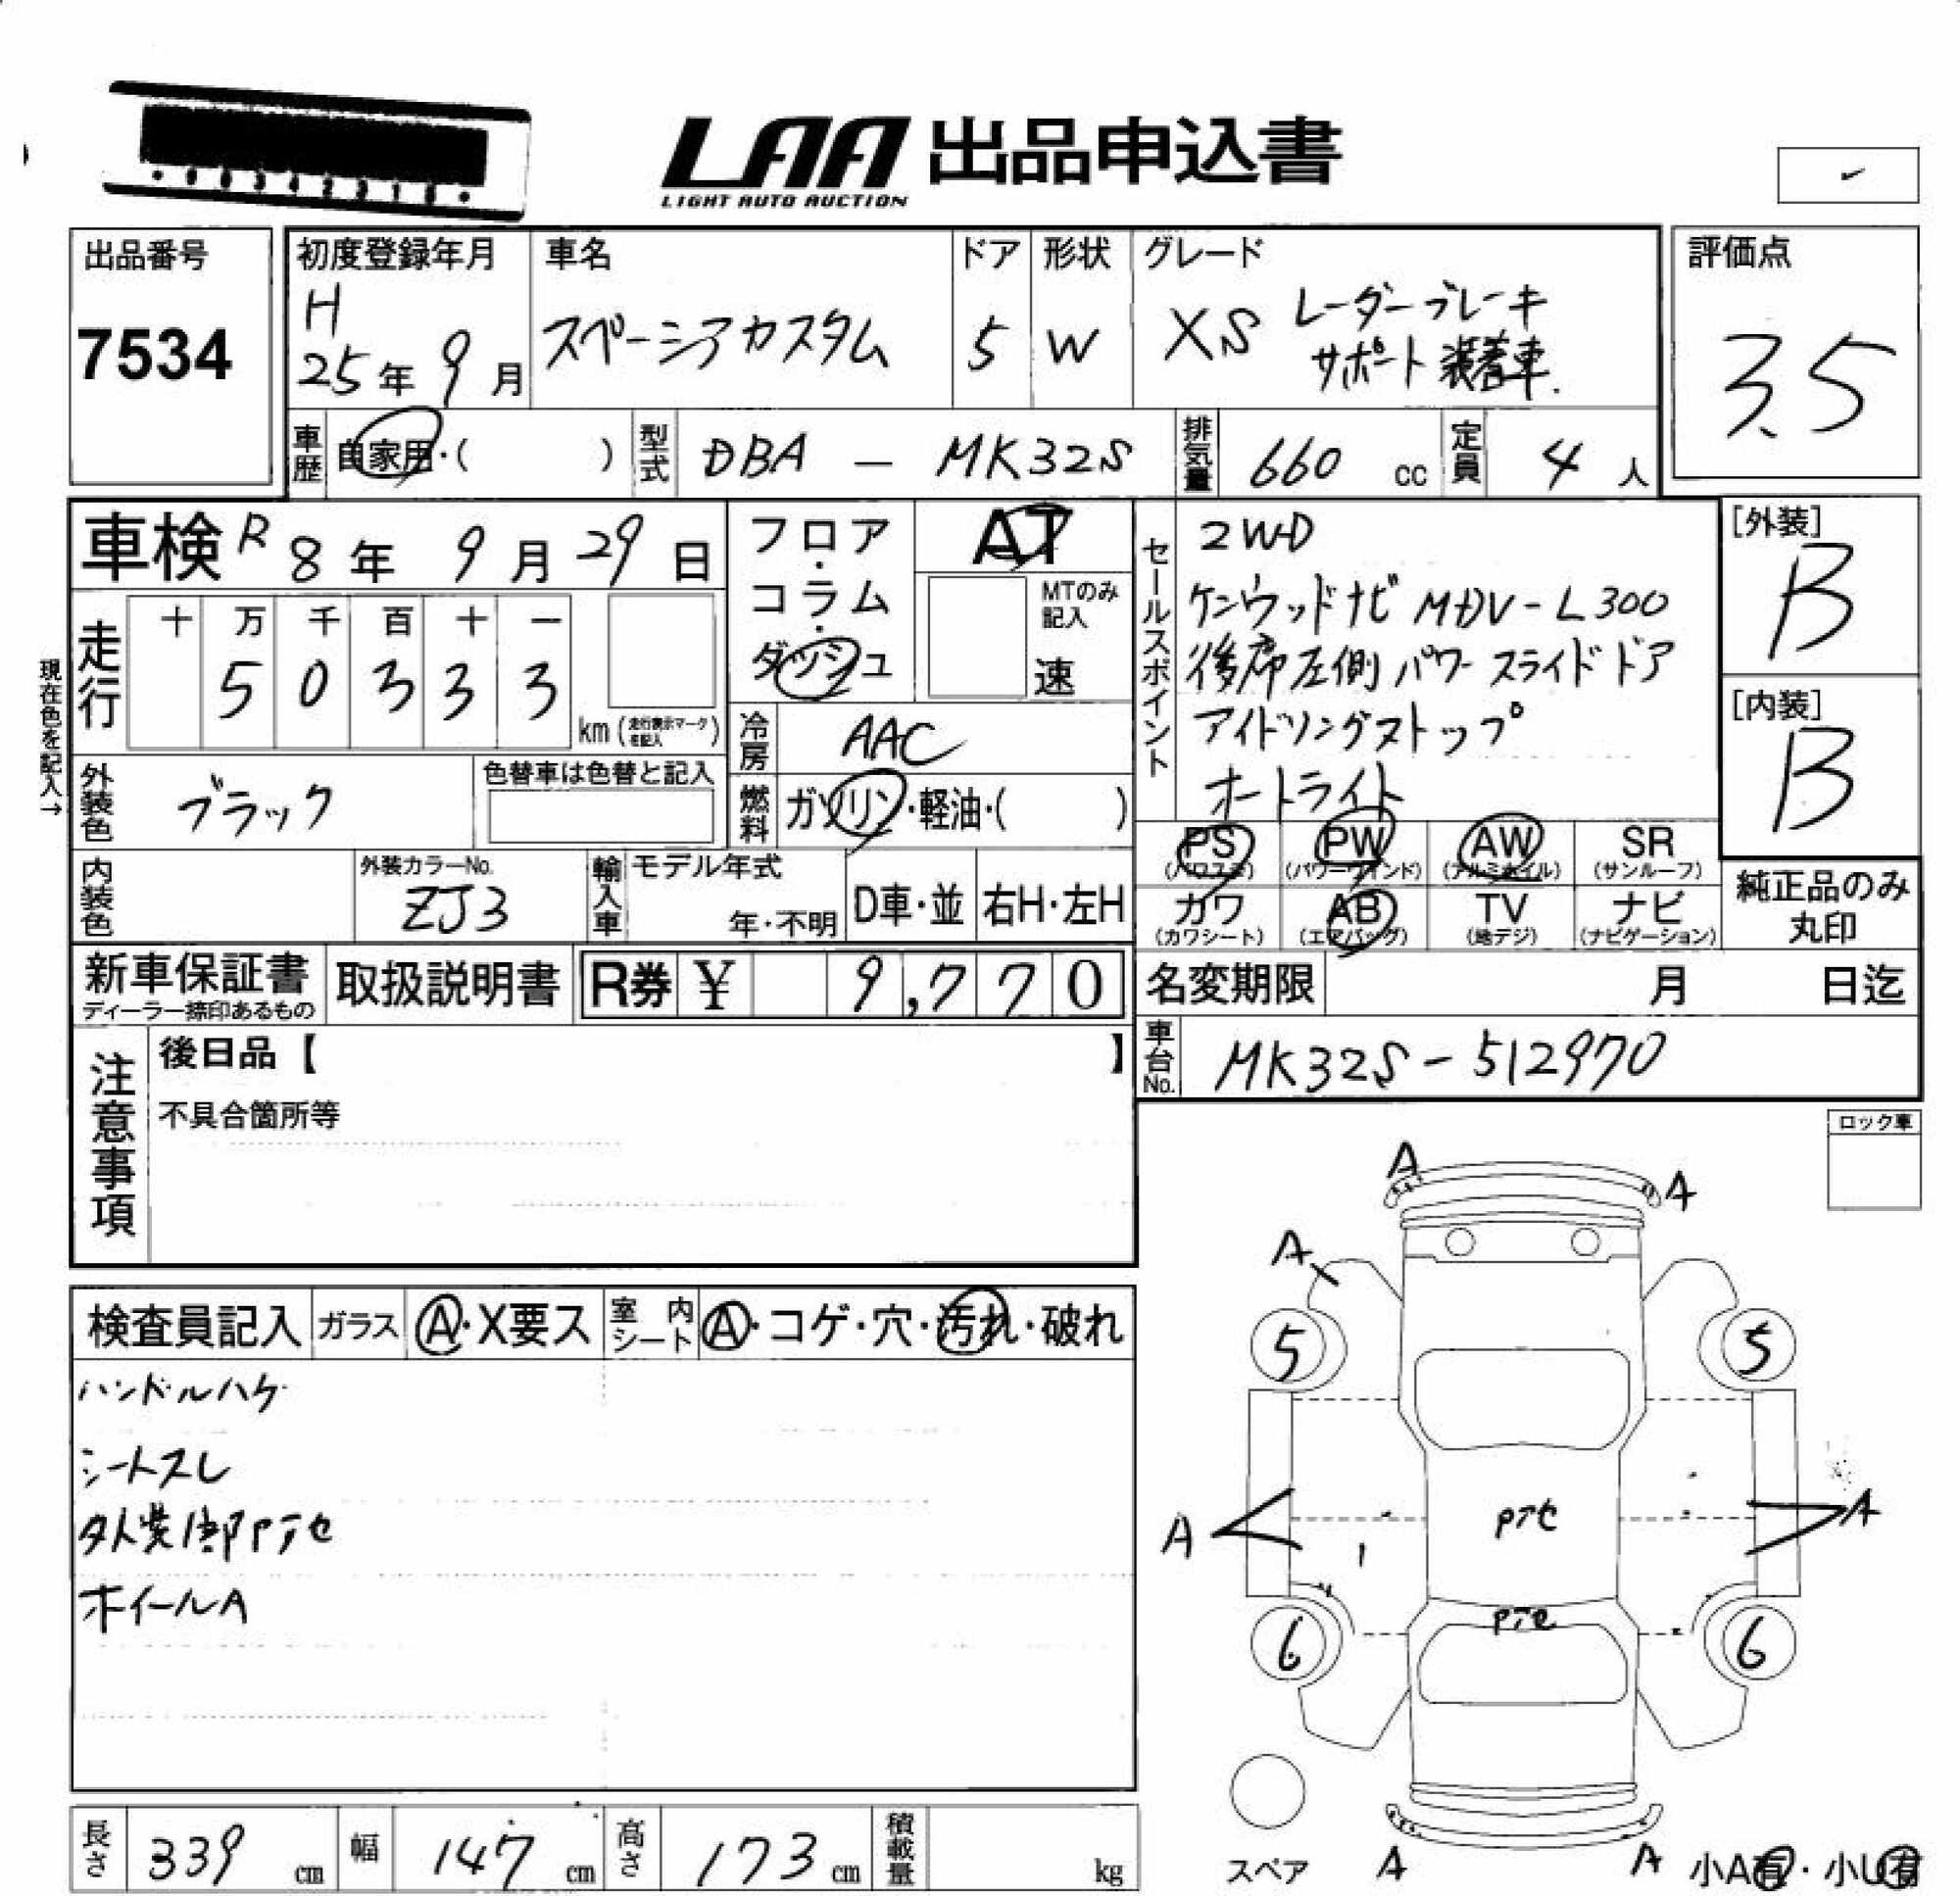 LAA 出品申込書
LIGHT AUTO AUCTION
出品番号
7534
初度登録年月
H
25年 9月
車名
スペーシアカスタム
ドア
5
形状
W
グレード
XS レーダーブレーキ
サポート装着車.
評価点
3.5
車歴
自家用・( )
型式
DBA － MK32S
排気量
660 cc
定員
4 人
車検 R 8年 9月 29日
現在色を記入→
走行
十 万 千 百 十 一
5 0 3 3 3
km (走行表示マークを記入)
フロア・コラム・ダッシュ
AT
MTのみ記入
速
冷房
AAC
燃料
ガソリン・軽油・( )
外装色
ブラック
色替車は色替と記入
内装色
外装カラーNo.
ZJ3
輸入車
モデル年式
年・不明
D車・並
右H・左H
セールスポイント
2WD
ケンウッドナビ MDV-L300
後席左側パワースライドドア
アイドリングストップ
オートライト
[外装]
B
[内装]
B
PS PW AW SR
(パワステ) (パワーウインド) (アルミホイル) (サンルーフ)
カワ AB TV ナビ
(カワシート) (エアバッグ) (地デジ) (ナビゲーション)
純正品のみ
丸印
新車保証書
ディーラー捺印あるもの
取扱説明書
R券 ¥ 9,770
名変期限 月 日迄
車台No.
MK32S-512970
注意事項
後日品【 】
不具合箇所等
ロック車
検査員記入
ガラス
A・X要ス
室内シート
A・コゲ・穴・汚れ・破れ
ハンドルハゲ
シートスレ
外装1部Pアセ
ホイールA
A
A
A
5
5
A
Pアセ
A
Pアセ
6
6
A
A
スペア
小A有・小U有
長さ
339 cm
幅
147 cm
高さ
173 cm
積載量
kg